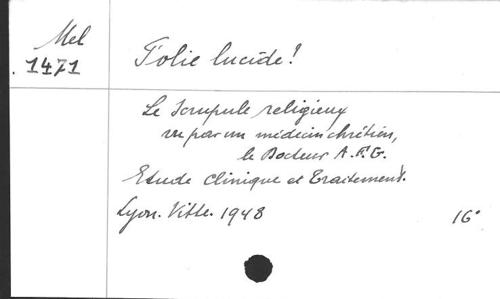 Mel
1471
Folie lucide!
Le Scrupule religieux
vu par un médecin chrétien,
le Docteur A.E.G.
Etude clinique et Traitement.
Lyon. Vitte. 1948 16°